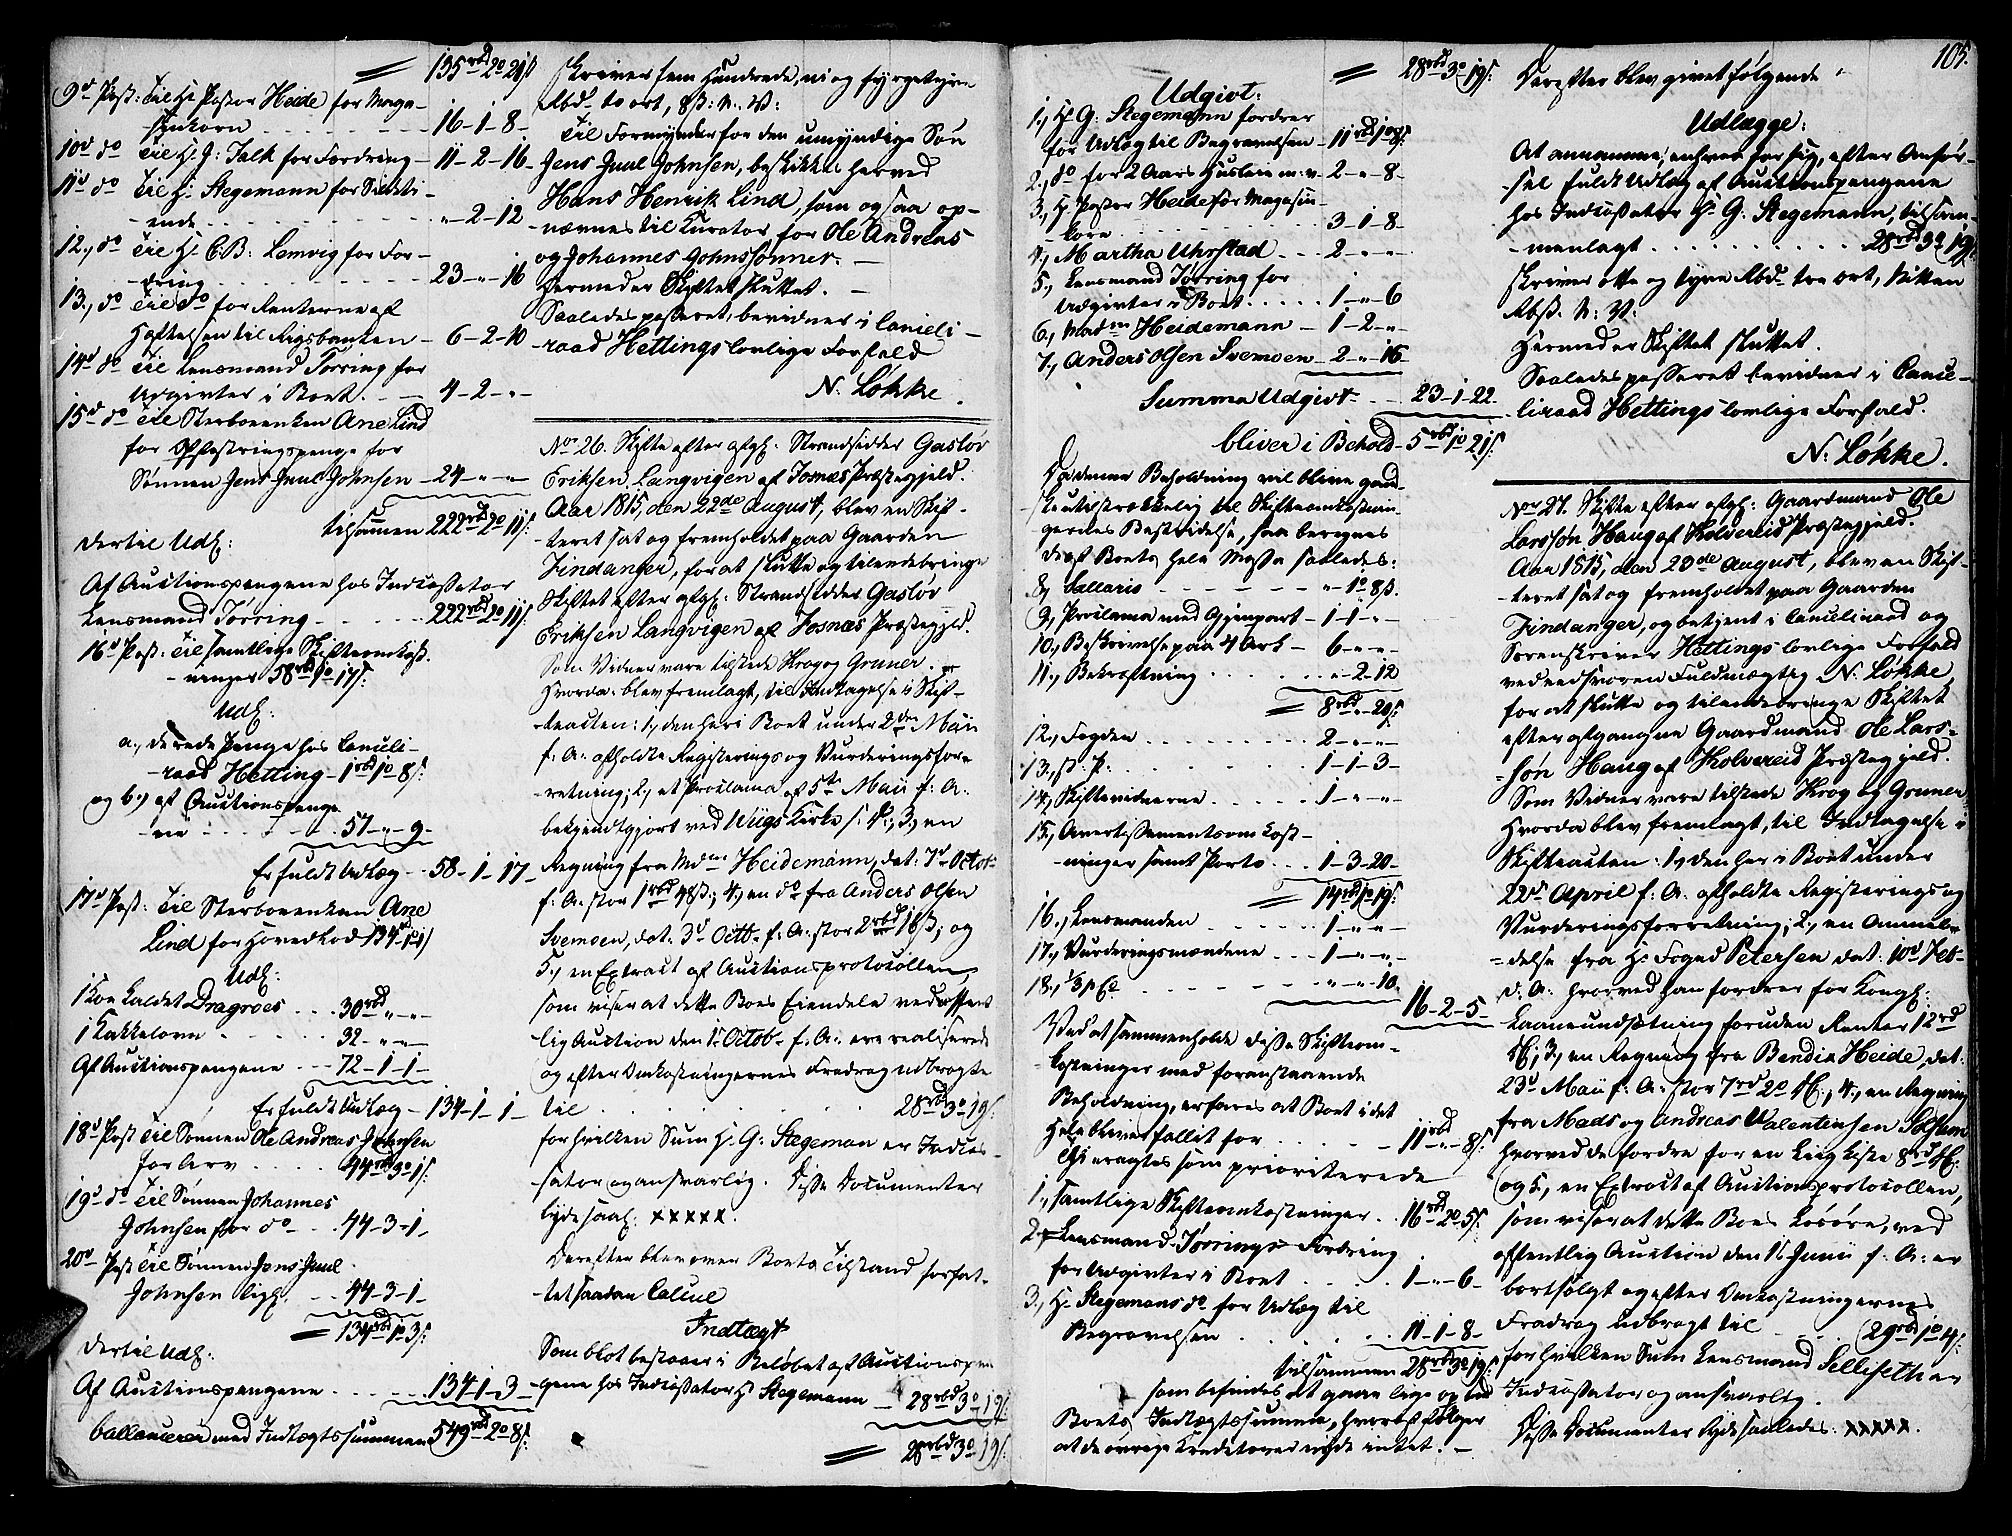 = 135 rbd 2 o 21 s
9d Post: til Hr Pastor Heide for Maga-
sinkorn - - - 16 - 1 - 8 -
10d do til Hr J: Falk for Fordring - 11 - 2 - 16 -
11d do til Hr Stegemann for
ende - - - " - 2 - 12
12., do til Hr C: B: Lemvig for For-
dring - - - 23 - " - 16
13., do til do for Renterne af
Heftelsen til Rigsbanken - 6 - 2 - 10
14d do til Lensmand Tørring for
Udgivter i Boet. - - 4 - 2 - "
15d do til Sterboenken Ane Lind
for Opfostringspenge for
Sønnen Jens Juul Johnsen - 24 - " - "
tilsammen 222 rbd 2 o 11 s:
dertil Udl:
Af Auctionspengene hos Incassator
Lensmand Tørring - - - 222 rbd 2 o 11 s
16d Post: til samtlige Skifteomkost-
ninger 58 rbd 1 o 17 s:
Udl:
a., derede Penge hos Cancelli-
raad Hetting - 1 rbd 1 o 8 s:
og b., af Auctionspenge
ne - - - 57 - " - 9 -
Er fuldt Udlæg - 58 - 1 - 17 -
17d Post: til Sterboenken Ane
Lind for Hovedlod 134 - 1 - 1
Udl:
1 Koe kaldet Dragroes - - 30 rbd " - "
1 Kakkelovn - - 32 - " - "
Af Auctionspengene - - 72 - 1 - 1 -
Er fuldt Udlæg - 134 - 1 - 1 -
18d Post til Sønnen Ole Andreas Johnsen
for Arv - - - 44 rbd 3 o 1 s:
19d do til Sønnen Johannes
Johnsen for do - - 44 - 3 - 1 -
20d Post til Sønnen Jens Juul
Johnsen lige - - 44 - 3 - 1 -
= 134 rbd 1 o 3 s:
dertil Udl:
Af Auctionspengene - - - 134 - 1 - 3 -
ballancerer med Indtægtssummen 549 rbd 2 o 8 s
skriver fem Hundrede, ni og fyrgetyve
Rbd. to ort, 8 s: N: V:
Til Formynder for den umyndige Søn
Jens Juul Johnsen, beskikkes herved
Hans Henrik Lind, som ogsaa op-
nævnes til Kurator for Ole Andreas
og Johannes Johnssønner. -
Hermed er Skiftet sluttet. -
Saaledes passeret, bevidner i Cancelli-
raad Hettings lovlige Forfald
N. Løkke.
No 26. Skifte efter afg: Strandsidder Gasløv
Eriksen Langvigen af Fosnæs Præstegjeld.
Aar 1815, den 22de August, blev en Skif-
teret sat og fremholdet paa Gaarden
Findanger, for at slutte og tilendebringe
Skiftet efter afg: Strandsidder Gasløv
Eriksen Langvigen af Fosnæs Præstegjld.
Som Vidner vare tilstede Krog og Gruner.
Hvorda blev fremlagt, til Indtagelse i Skif-
teacten: 1., den her i Boet under 2den Maii
f: A: afholdte Registerings og Vurderingsfor-
retning; 2., et Proclama af 5te Maii f: A:
bekjendtgjort ved Wiigs Kirke s: A:; 3., en
Regning fra Mdm Heidemann, dat: 7d Octob:
f: A: stor 1 rbd 48 s; 4., en do fra Anders Olsen
Svemoen, dat: 3d Octb: f: A: stor 2 rbd 16 s; og
5., en Extract af Auctionsprotocollen,
som viser at dette Boes Eiendele ved offent-
lig Auction den 1d Octob: f: A: ere realiserede
og efter Omkostningernes Fradrag udbragte
til - - - 28 rbd 3 o 19 s.
for hvilken Sum Hr G: Stegeman er Incas-
sator og ansvarlig. Disse Documenter
lyde saal: xxxxx.
Derefter blev over Boets Tilstand forfat-
tet saadan Calcul
Indtægt
Som blot bestaaer i Beløbet af Auctionspen
gene hos Incassator Hr Stegemann - 28 rbd 3 o 19 s.
= 28 rbd 3 o 19 s.
105.
= 28 rbd 3 o 19 s.
Udgivt:
1., Hr G: Stegemann fordrer
for Udlæg til Begravelsen - 11 rd 1 o 8 s:
2., do for 2 Aars Huusleie m: v: 2 - " - 8 -
3., Hr Pastor Heide for Magasin-
korn - - - 3 - 1 - 8 -
4., Martha Uhrstad - - 2 - " - "
5., Lensmand Tørring for
Udgivter i Boet - - - 1 - " - 6
6., Madm Heidemann - 1 - 2 - "
7., Anders Olsen Svemoen - 2 - " - 16
Summa Udgivt - - 23 - 1 - 22
bliver i Behold - 5 rbd 1 o 21 s:
Da denne Beholdning vil blive gand-
ske utilstrækkelig til Skifteomkostnin-
gernes Bestridelse, saa beregnes
de af Boets hele Masse saaledes:
8., Sallaris - - - " - 1 o 8 s.
9., Proclama med Gjenpart - 1 - 1 - "
10., Beskrivelse paa 4 Ark - 6 - " - "
11., Bekræftning - - - " - 2 - 12
= 8 rbd " - 20 s:
12., Fogden - - - 2 - " - "
13., st: P: - - - 1 - 1 - 3 -
14., Skiftevidnerne - - - 1 - " - "
15., Avertissements omkost-
ninger samt Porto - - 1 - 3 - 20 -
= 14 rd 1 o 19 s:
16., Lensmanden - - - 1 - " - "
17., Vurderingsmændene - - 1 - " - "
18., 1/3 p Ct - - - " - " - 10 -
16 - 2 - 5 -
Ved at sammenholde disse Skifteom-
kostninger med foranstaaende
Beholdning, erfares at Boet i det
Hele bliver fallit for - - - 11 rbd " - 8 s:
Thi eragtes som prioriterede
1., samtlige Skifteomkostninger. . 16 rbd 2 o 5 s:
2., Lensmand Tørrings Fordring
for Udgivter i Boet - - - 1 - " - 6 -
3., Hr Stegemans do for Udlæg til
Begravelsen - - - 11 - 1 - 8 -
tilsammen 28 rbd 3 o 19 s:
som befindes at gaae lige op med
Boets Indtægtssumma, hvoraf følger
at de øvrige Kreditorer nyde intet. -
Derefter blev givet følgende
Udlægge:
At annamme, enhver for sig, efter Anfør-
sel fuldt Udlæg af Auctionspengene
hos Incassator Hr G: Stegemann, tilsam-
menlagt - - - 28 rbd 3 o 19 s.
skriver otte og tyve Rbd. tre ort, nitten
Rbs. N: V:
Hermed er Skiftet sluttet.
Saaledes passeret bevidner i Cancel-
liraad Hettings lovlige Forfald.
N: Løkke.
No 27. Skifte efter afg: Gaardmand Ole
Larssøn Haug af Kolvereid Præstegjeld.
Aar 1815, den 23de August, blev en Skif-
teret sat og fremholdet paa Gaarden
Findanger, og betjent i Cancelliraad og
Sorenskriver Hettings lovlige Forfald
ved edsvoren Fuldmægtig N: Løkke,
for at slutte og tilendebringe Skiftet
efter afgangne Gaardmand Ole Lars-
søn Haug af Kolvereid Præstegjeld.
Som Vidner vare tilstede Krog og Gruner.
Hvorda blev fremlagt, til Indtagelse i
Skifteacten: 1., den her i Boet under
22d April f: A: afholdte Registerings og
Vurderingsforretning; 2., en Anmel-
delse fra Hr Foged Petersen dat: 10d Feb-
d: A: hvorved han fordrer for Kongl:
Laaneundsætning foruden Renter 12 rd
S:; 3., en Regning fra Bendix Heide, dat:
23d Maii f: A: stor 7 rd 2 o S:; 4., en Regning
fra Mads og Andreas Valentinsen Solsem
hvorved de fordre for en Liig Kiste 8 rd S:
og 5., en Extract af Auctionsprotocollen,
som viser at dette Boes Løsøre, ved
offentlig Auction den 1d Junii f: A: er
bortsolgt og efter Omkostningernes
Fradrag udbragt til - - 29 rbd 1 o 4 s:
for hvilken Sum Lensmand Sellisetter
Incassator og ansvarlig.
Disse Documenter lyde saaledes: xxxxx.